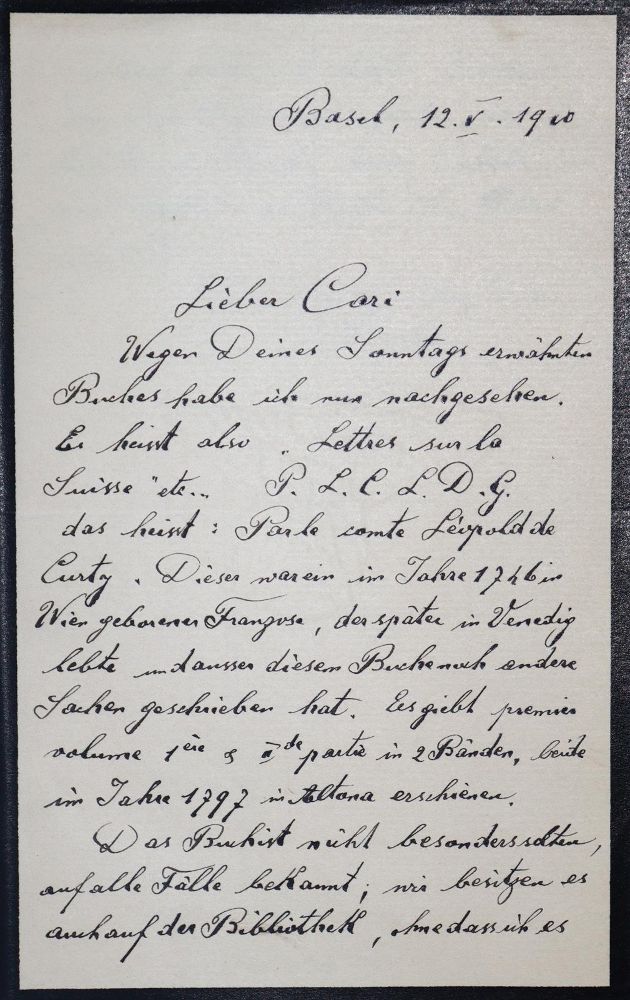 Basel, 12. V. 1910
Lieber Cari
Wegen Deines Sonntags erwähnten
Buches habe ich nun nachgesehen.
Es heisst also „Lettres sur la
Suisse" etc.. P. L. C. L. D. G.
das heisst: Par le comte Léopold de
Curty. Dieser war ein im Jahre 1746 in
Wien geborener Franzose, der später in Venedig
lebte und ausser diesem Buche noch andere
Sachen geschrieben hat. Es giebt premier
volume 1ère & IIde partie in 2 Bänden, beide
im Jahre 1797 in Altona erschienen.
Das Buch ist nicht besonders selten,
auf alle Fälle bekannt; wir besitzen es
auch auf der Bibliothek, ohne dass ich es